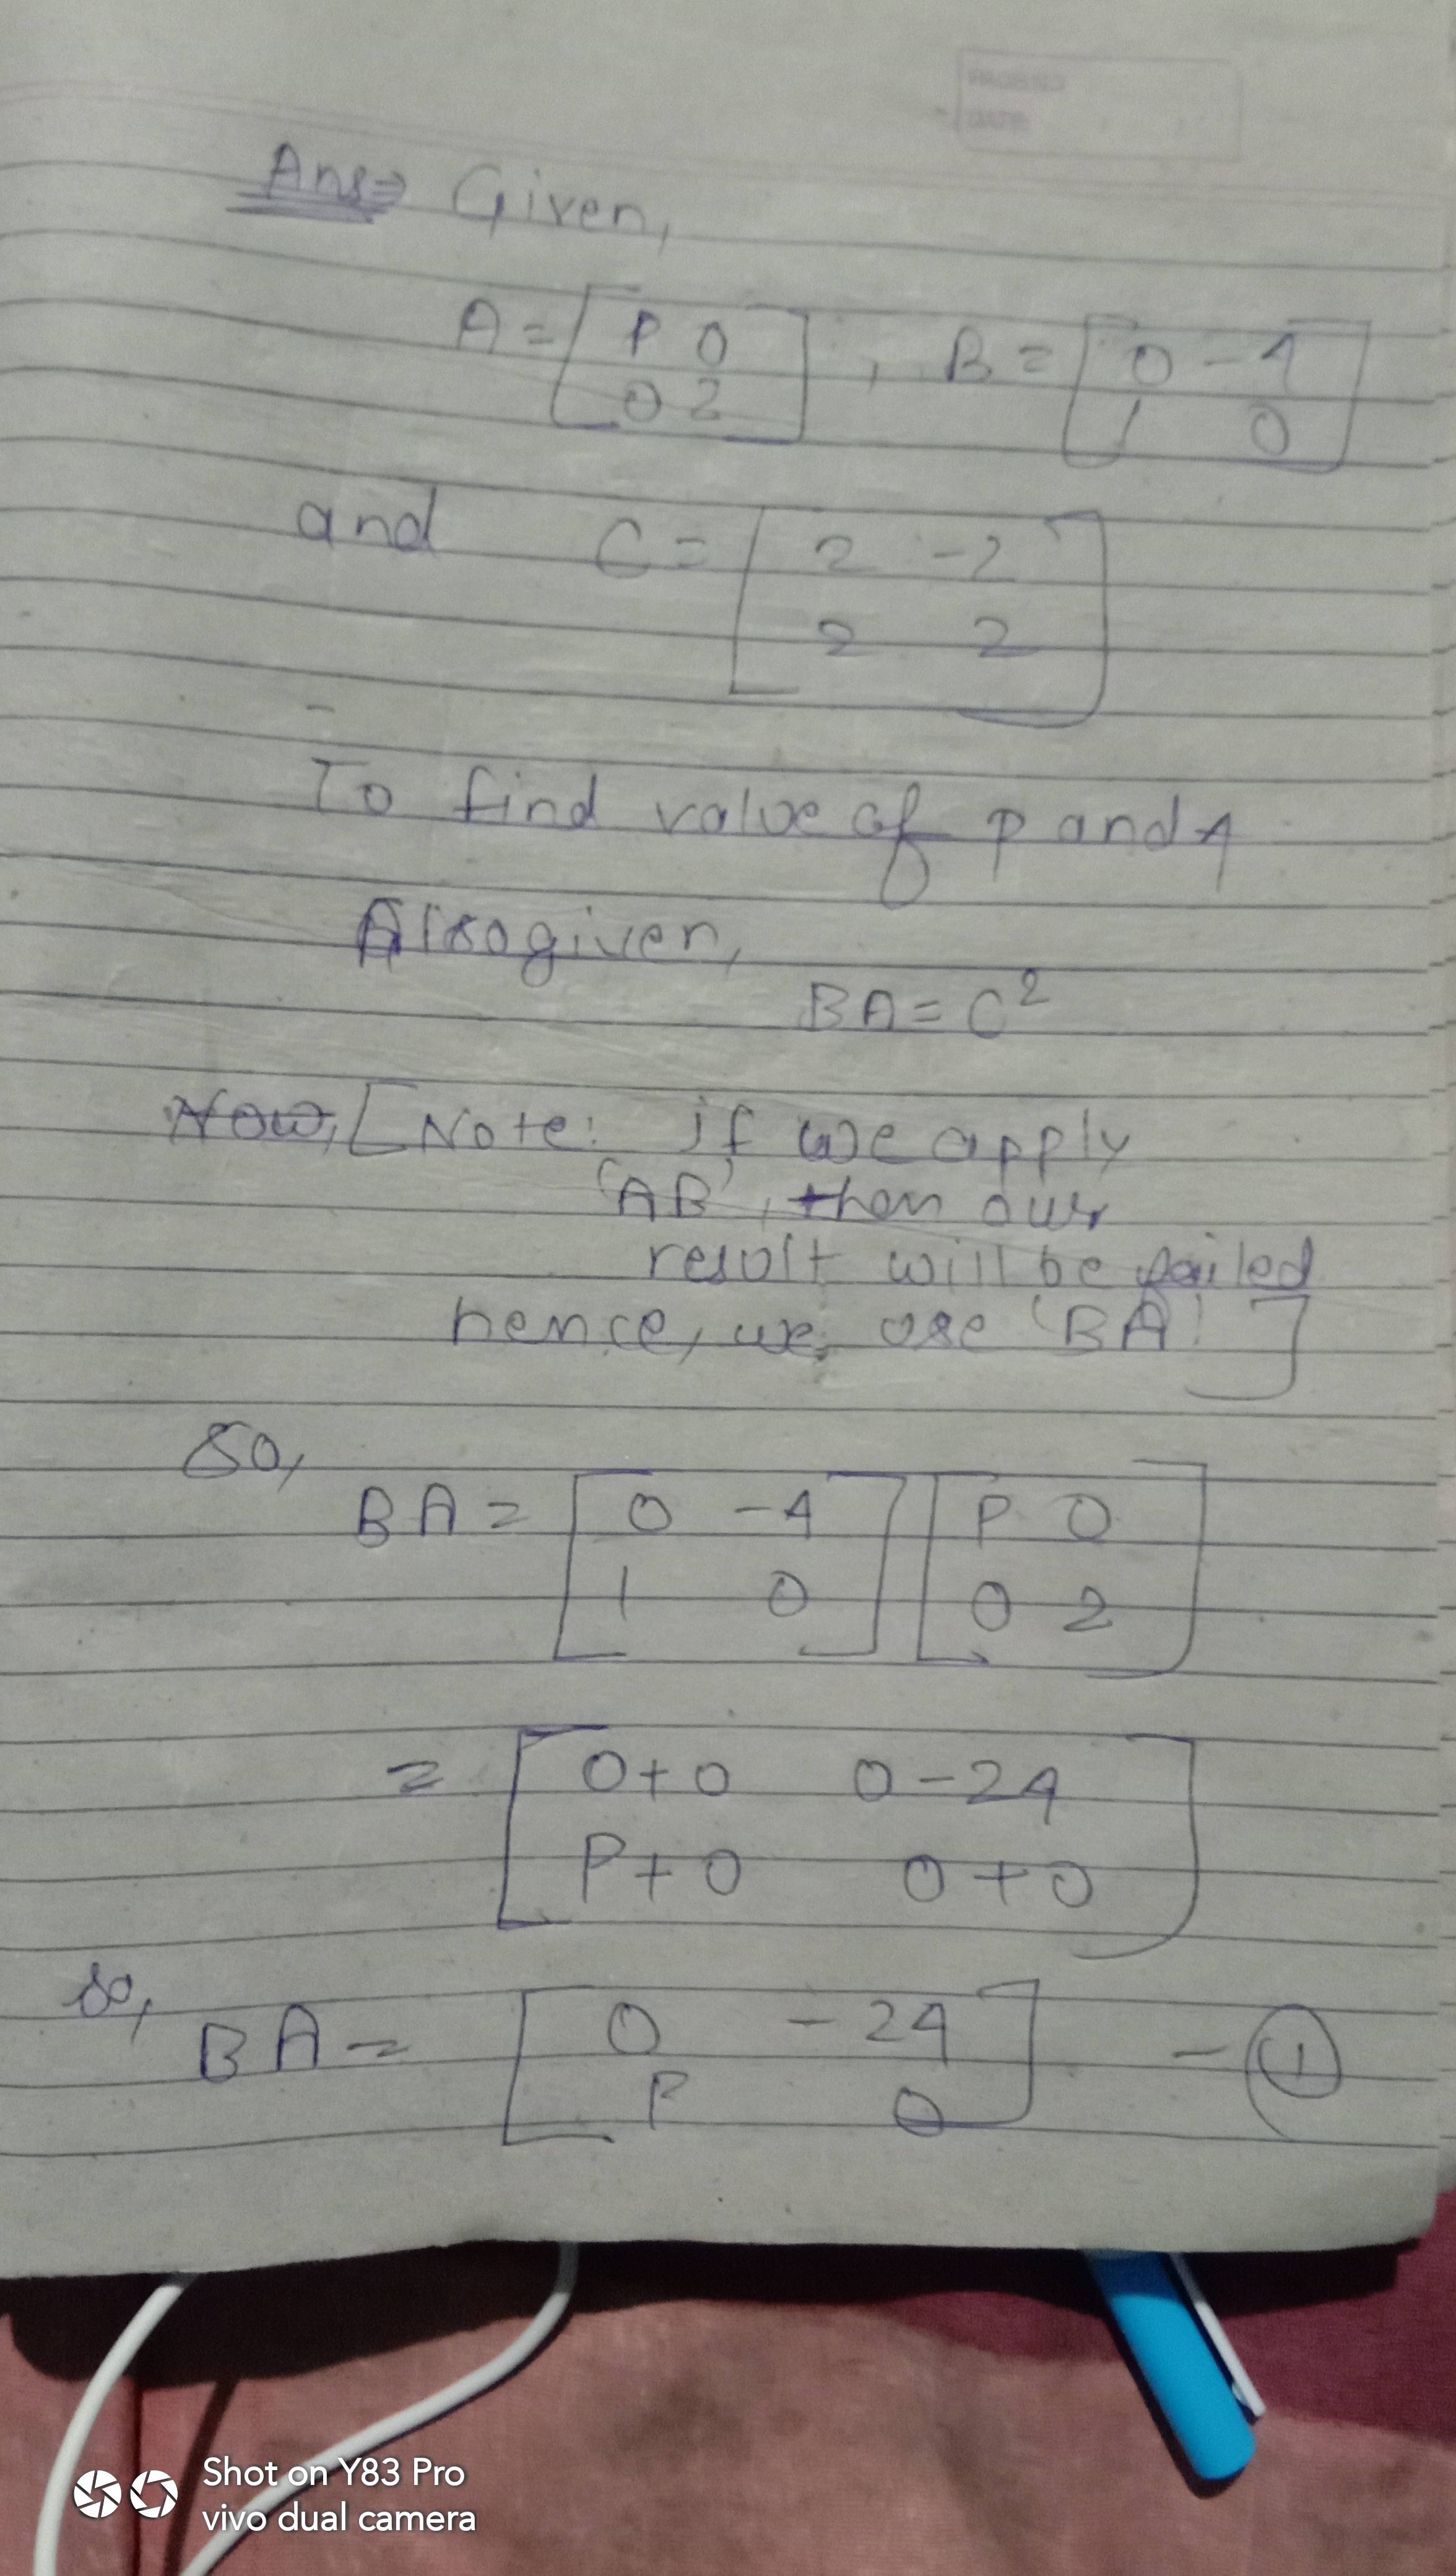 PAGE NO
DATE
Ans⇒ Given,
A = [P 0
0 2] , B = [0 -q
1 0]
and C = [2 -2
2 2]
To find value of p and q
Also given,
BA = C²
Now, [Note: if we apply
'AB', then our
result will be failed
hence, we use 'BA']
So,
BA = [0 -q [P 0
1 0] 0 2]
= [0+0 0-2q
P+0 0+0]
So,
BA = [0 -2q
P 0] - ①
Shot on Y83 Pro
vivo dual camera